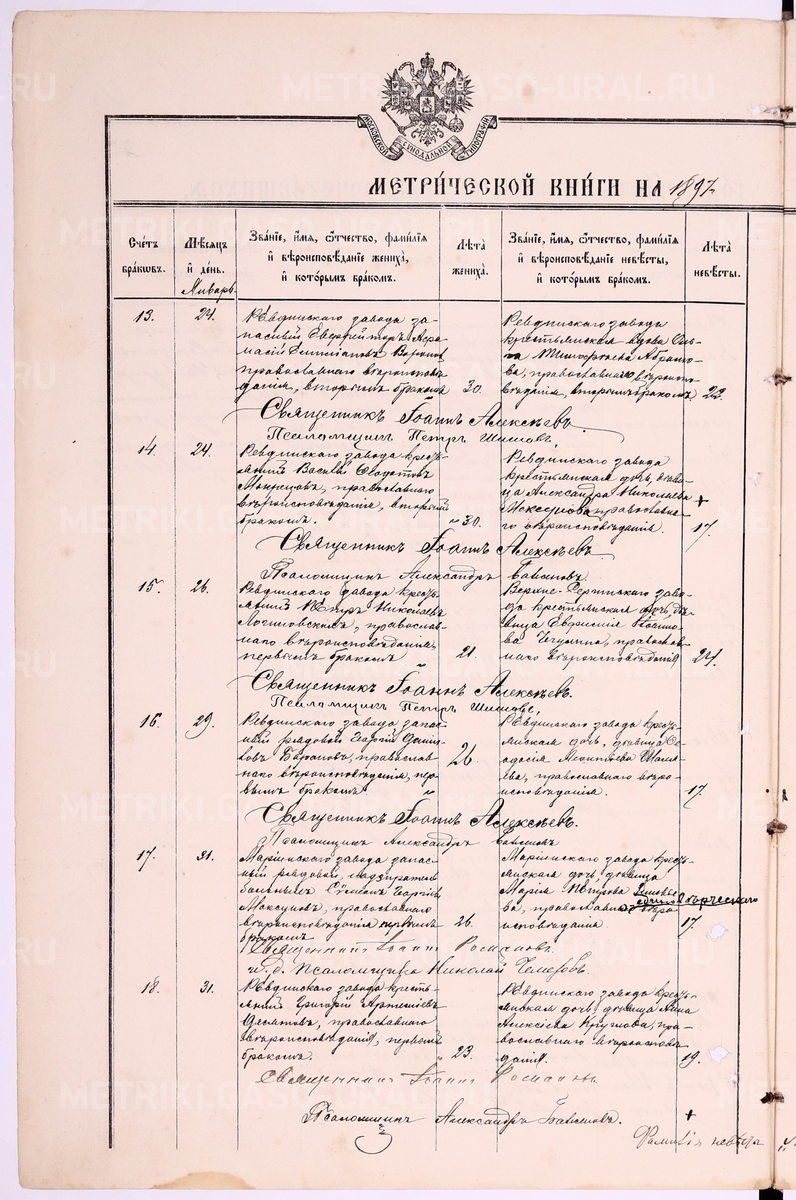 METRIKI.GASO-URAL.RU
МОСКОВСКОЙ СѴНОДАЛЬНОЙ ТИПОГРАФІИ
МЕТРИЧЕСКОЙ КНИГИ НА 1897
Счетъ браковъ.
Мѣсяцъ и день.
Званіе, имя, отчество, фамилія и вѣроисповѣданіе жениха, и которымъ бракомъ.
Лѣта жениха.
Званіе, имя, отчество, фамилія и вѣроисповѣданіе невѣсты, и которымъ бракомъ.
Лѣта невѣсты.
Январь
13.
24.
Ревдинскаго завода за-
пасный Ефрейторъ Афа-
насій
православнаго вѣроиспов-
данія, вторымъ бракомъ
30.
Ревдинскаго завода
крестьянская вдова Оль-
га Тимофеева Абрамо-
ва, православнаго вѣроиспо-
вѣданія, вторымъ бракомъ
23.
Священникъ Іоаннъ Алексѣевъ.
Псаломщикъ Петръ Шишовъ.
14.
24.
Ревдинскаго завода кресть-
янинъ Василій Федотовъ
православнаго
вѣроисповѣданія, вторымъ
бракомъ.
30.
Ревдинскаго завода
крестьянская дочь, дѣви-
ца Александра Николаева +
православна-
го вѣроисповѣданія.
17.
Священникъ Іоаннъ Алексѣевъ
Псаломщикъ Александръ
15.
26.
Ревдинскаго завода кресть-
янинъ Петръ Николаевъ
Логиновскихъ, православ-
наго вѣроисповѣданія,
первымъ бракомъ
21.
Верхне-Сергинскаго заво-
да крестьянская дочь, дѣ-
вица Евфимія Иоанно-
ва православ-
наго вѣроисповѣданія
24.
Священникъ Іоаннъ Алексѣевъ.
Псаломщикъ Петръ Шишовъ.
16.
29.
Ревдинскаго завода запас-
ный рядовой Георгій Дани-
ловъ православ-
наго вѣроисповѣданія, пер-
вымъ бракомъ
26.
Ревдинскаго завода кресть-
янская дочь, дѣвица Ѳе-
одосія Леонтіева
православнаго вѣро-
исповѣданія.
17.
Священникъ Іоаннъ Алексѣевъ.
Псаломщикъ Александръ
17.
31.
Маріинскаго завода запас-
ный рядовой, надзиратель
Сѵмеонъ Георгіевъ
православнаго
вѣроисповѣданія первымъ
бракомъ
26.
Маріинскаго завода кресть-
янская дочь, дѣвица
Марія Петрова
ва, православнаго вѣро-
исповѣданія
17.
Священникъ Іоаннъ Романовъ.
и. д. Псаломщика Николай
18.
31.
Ревдинскаго завода кресть-
янинъ Григорій Артеміевъ
православнаго
вѣроисповѣданія, первымъ
бракомъ.
23.
Ревдинскаго завода кресть-
янская дочь дѣвица Анна
Алексіева Круглова, пра-
вославнаго вѣроисповѣ-
данія.
19.
Священникъ Іоаннъ Романовъ
Псаломщикъ Александръ
+
Фамилія невѣсты